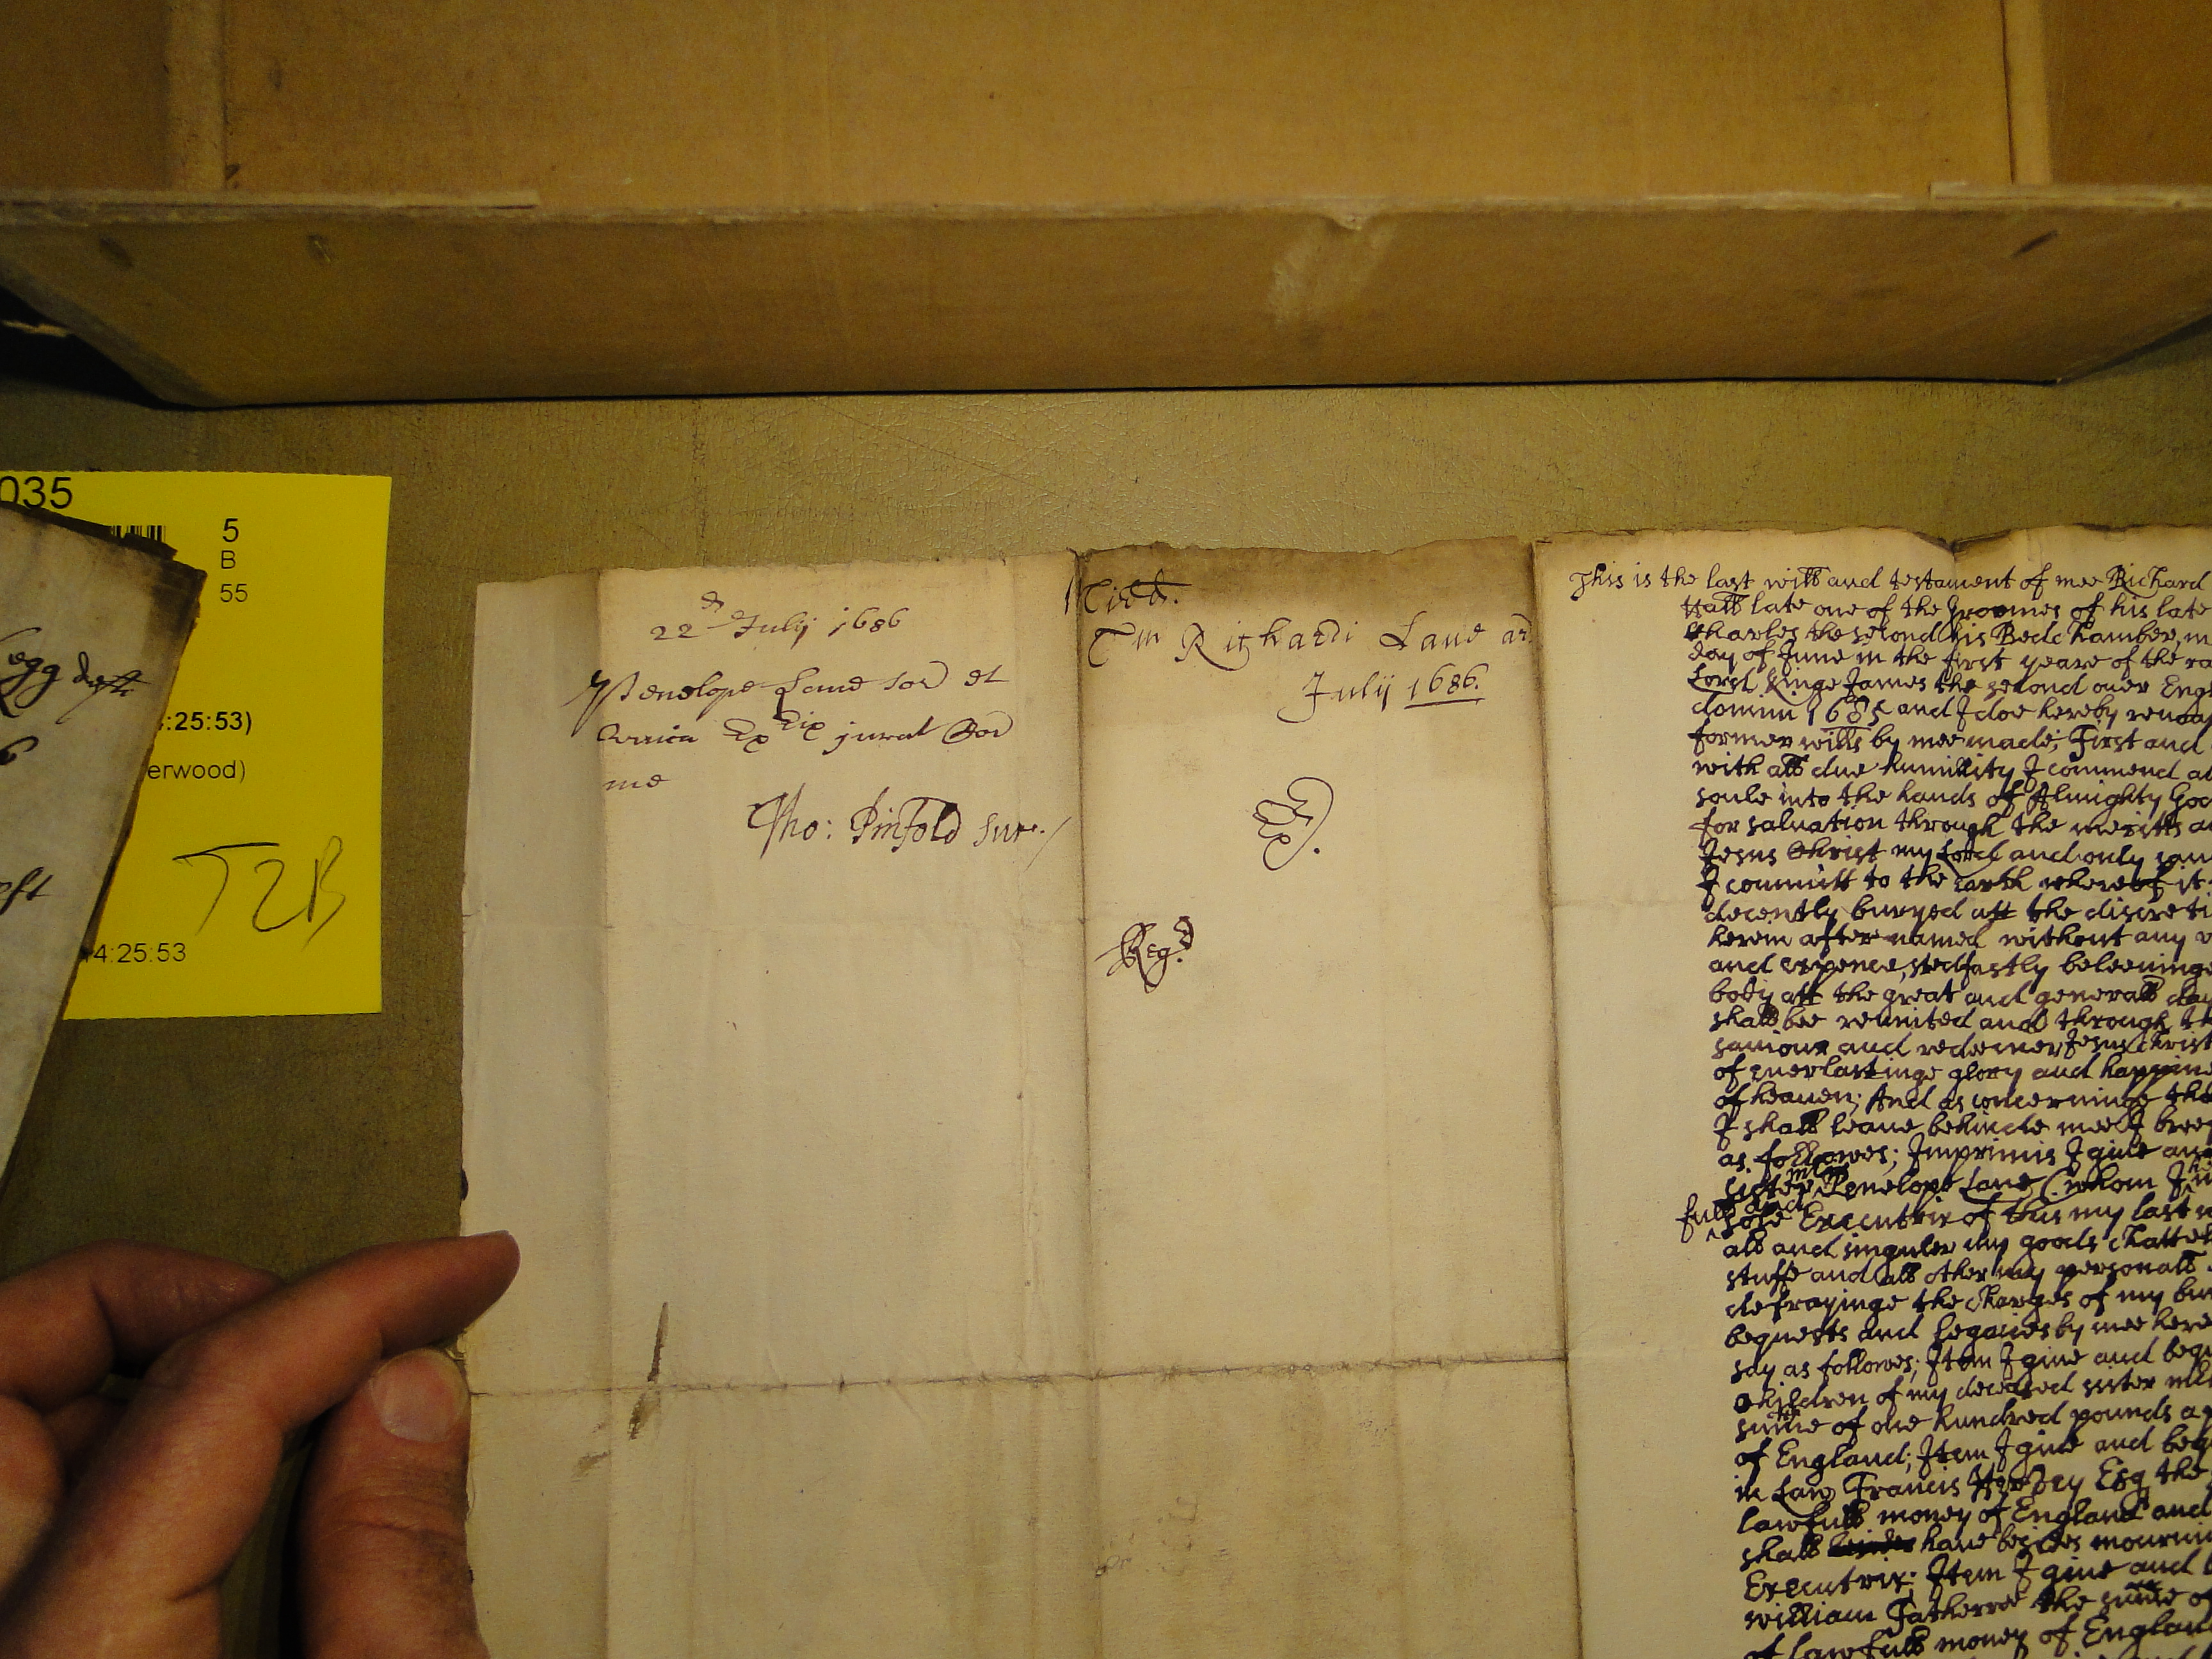 035
5
B
55
:25:53)
erwood)
T2B
4:25:53
egg
22d July 1686
Penelope Lane sor et
unica Exrix jurat Cor
me
Tho: Pinfold Sur:
Tm Richardi Lane ar
July 1686.
Ex).
Regd
This is the last will and testament of mee Richard
late one of the Groomes of his late
Charles the second his Bedchamber, m
day of June in the first yeare of the ra
Lord Kinge James the second over Engl
domini 1685 and I doe hereby revoa
former wills by mee made; First and
with all due humillity I commend
soule into the hands of Almighty God
for salvation through the meritts a
Jesus Christ my Lord and only
I committ to the earth whereof it
decently buryed att the discreti
herein after named without any
and expence, stedfastly beleeuinge
body att the great and generall day
shall bee reunited and through th
saviour and redeemer Jesus Christ
of everlastinge glory and happine
of heaven; And as concerninge the
I shall leave behinde mee I
as followes; Imprimis I give and
sister Penelope Lane (whom I
full and
sole Executrix of this my last
all and singuler my goods chattel
stuffe and all other my personall
defrayinge the charges of my bu
bequests and Legacies by mee here
say as followes; Item I give and beq
children of my deceased sister
summe of one hundred pounds a
of England; Item I give and beq
in Law Francis Esq the
lawfull money of England and
shall have besides mourni
Executrix; Item I give and b
william the summe of
of lawfull money of England